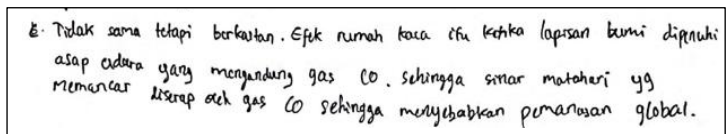 E. Tidak sama tetapi berkaitan. Efek rumah kaca itu ketika lapisan bumi dipenuhi
asap udara yang mengandung gas CO. Sehingga sinar matahari yg
Memancar diserap oleh gas CO sehingga menyebabkan pemanasan global.